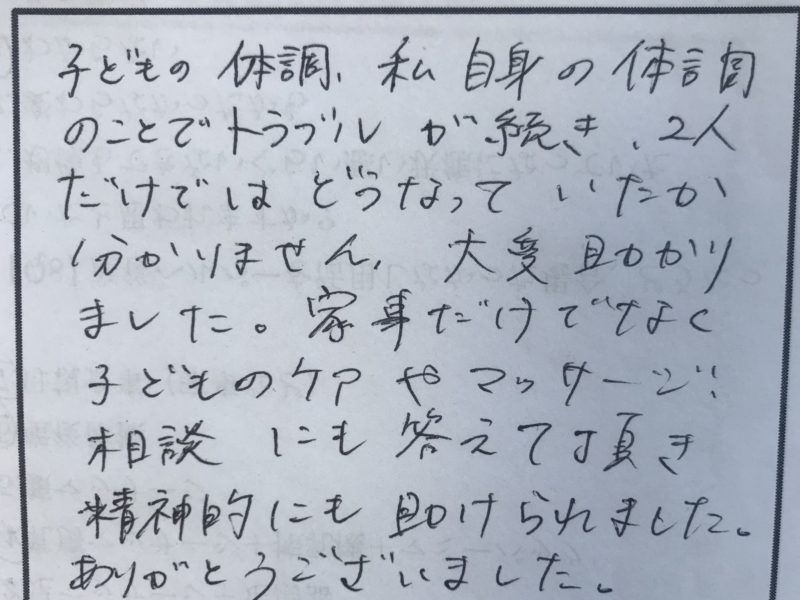 子どもの体調、私自身の体調
のことでトラブルが続き、2人
だけではどうなっていたか
分かりません。大変助かり
ました。家事だけでなく
子どものケアやマッサージ、
相談にも答えて頂き
精神的にも助けられました。
ありがとうございました。